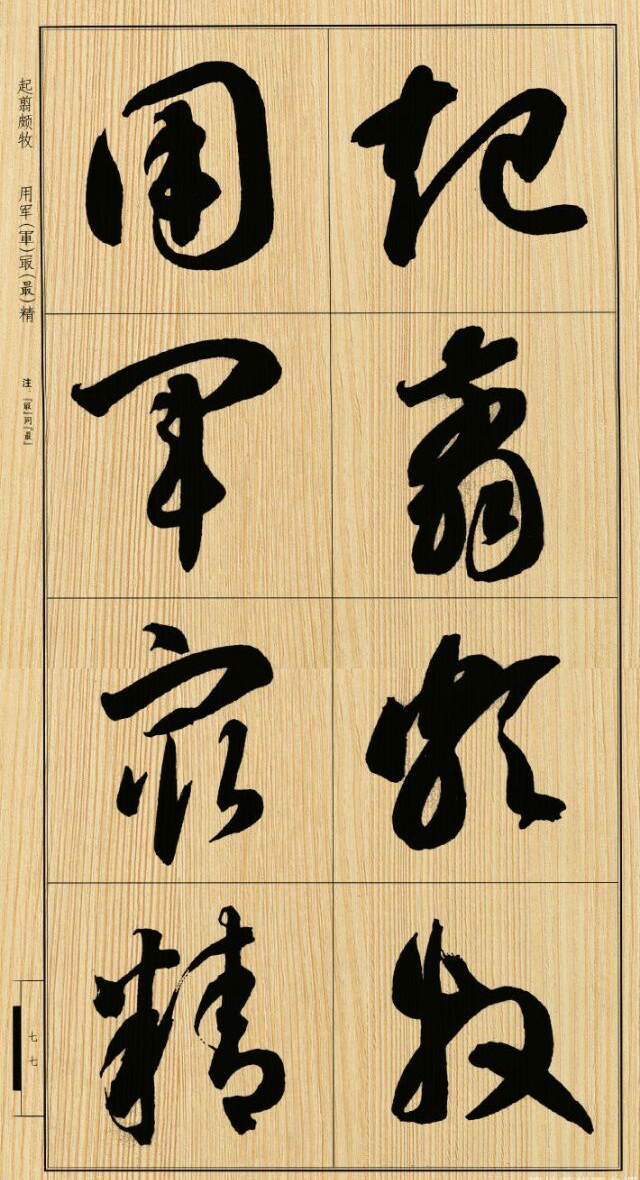 起翦颇牧
用军冣精
起翦颇牧 用军(軍)冣(最)精
注:『冣』同『最』
七七